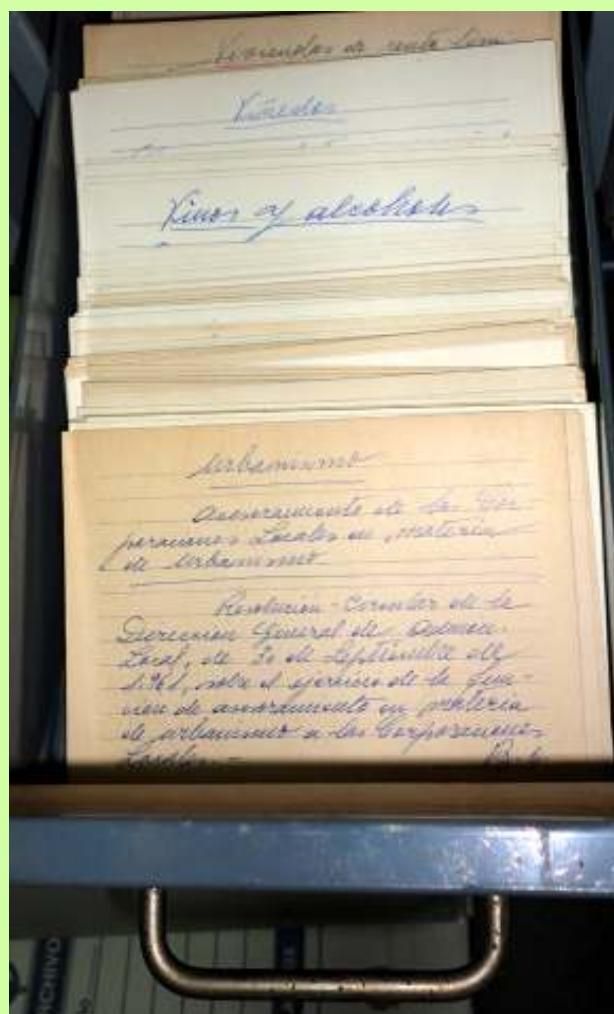 Viviendas de renta limi-
Viñedos
Vinos y alcoholes
Urbanismo
Asesoramiento de las Cor-
poraciones Locales en materia
de Urbanismo
Resolución-Circular de la
Dirección General de Admon.
Local, de 30 de Septiembre de
1.961, sobre el ejercicio de la fun-
ción de asesoramiento en materia
de urbanismo a las Corporaciones
Locales.-
CHIVO